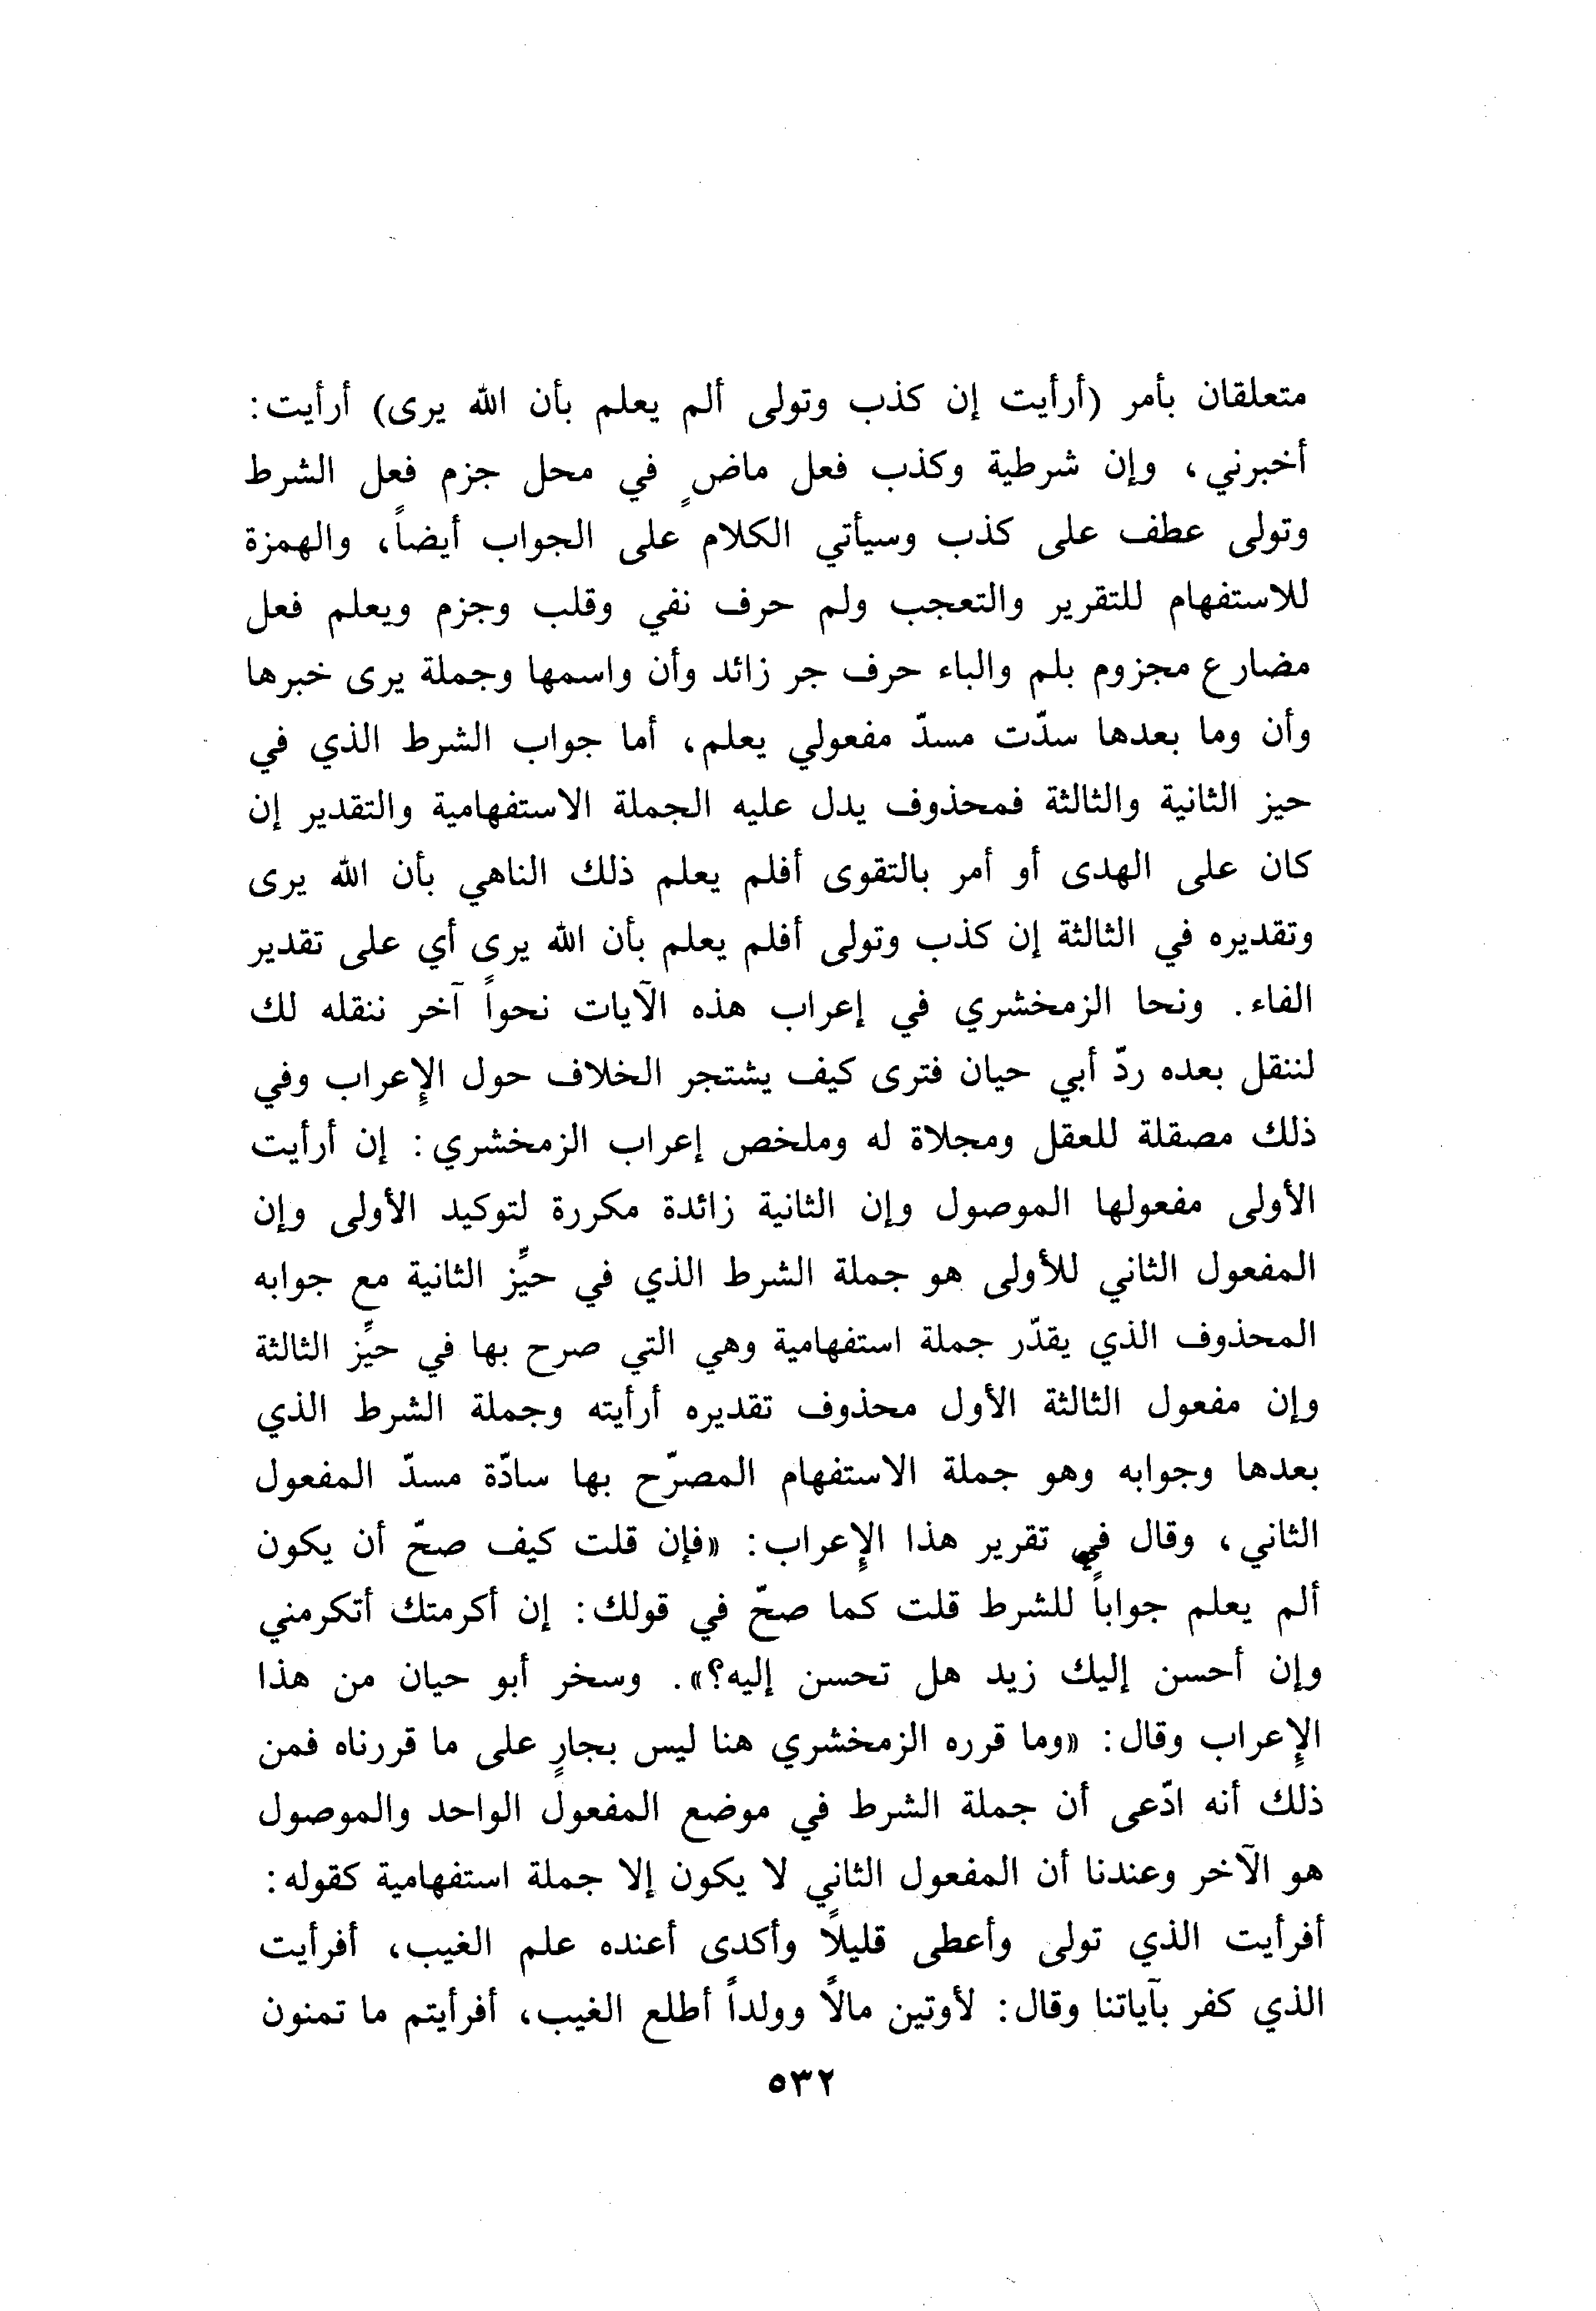 متعلقان بأمر (أرأيت إن كذب وتولى ألم يعلم بأن الله يرى) أرأيت:
أخبرني، وإن شرطية وكذب فعل ماضٍ في محل جزم فعل الشرط
وتولى عطف على كذب وسيأتي الكلام على الجواب أيضاً، والهمزة
للاستفهام للتقرير والتعجب ولم حرف نفي وقلب وجزم ويعلم فعل
مضارع مجزوم بلم والباء حرف جر زائد وأن واسمها وجملة يرى خبرها
وأن وما بعدها سدّت مسدّ مفعولي يعلم، أما جواب الشرط الذي في
حيز الثانية والثالثة فمحذوف يدل عليه الجملة الاستفهامية والتقدير إن
كان على الهدى أو أمر بالتقوى أفلم يعلم ذلك الناهي بأن الله يرى
وتقديره في الثالثة إن كذب وتولى أفلم يعلم بأن الله يرى أي على تقدير
الفاء. ونحا الزمخشري في إعراب هذه الآيات نحواً آخر ننقله لك
لننقل بعده ردّ أبي حيان فترى كيف يشتجر الخلاف حول الإعراب وفي
ذلك مصقلة للعقل ومجلاة له وملخص إعراب الزمخشري: إن أرأيت
الأولى مفعولها الموصول وإن الثانية زائدة مكررة لتوكيد الأولى وإن
المفعول الثاني للأولى هو جملة الشرط الذي في حيِّز الثانية مع جوابه
المحذوف الذي يقدّر جملة استفهامية وهي التي صرح بها في حيِّز الثالثة
وإن مفعول الثالثة الأول محذوف تقديره أرأيته وجملة الشرط الذي
بعدها وجوابه وهو جملة الاستفهام المصرّح بها سادّة مسدّ المفعول
الثاني، وقال في تقرير هذا الإعراب: «فإن قلت كيف صحّ أن يكون
ألم يعلم جواباً للشرط قلت كما صحّ في قولك: إن أكرمتك أتكرمني
وإن أحسن إليك زيد هل تحسن إليه؟». وسخر أبو حيان من هذا
الإعراب وقال: «وما قرره الزمخشري هنا ليس بجارٍ على ما قررناه فمن
ذلك أنه ادّعى أن جملة الشرط في موضع المفعول الواحد والموصول
هو الآخر وعندنا أن المفعول الثاني لا يكون إلا جملة استفهامية كقوله:
أفرأيت الذي تولى وأعطى قليلاً وأكدى أعنده علم الغيب، أفرأيت
الذي كفر بآياتنا وقال: لأوتين مالاً وولداً أطلع الغيب، أفرأيتم ما تمنون
٥٣٢